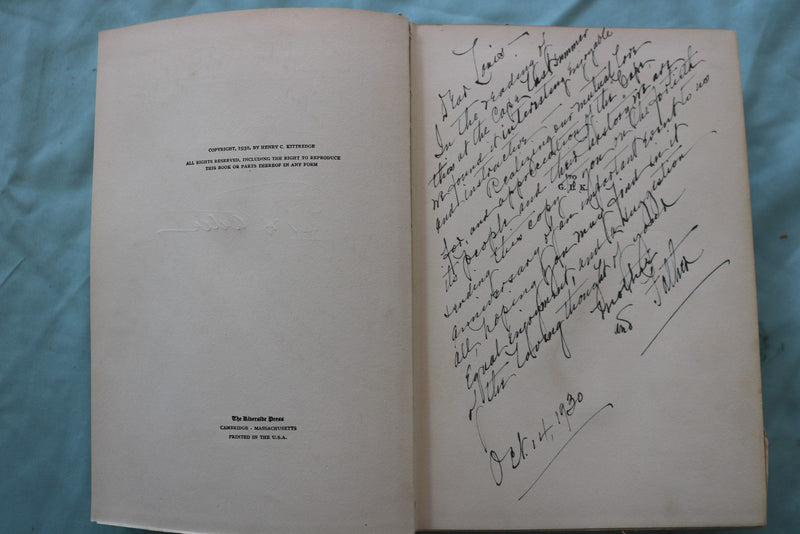 COPYRIGHT, 1930, BY HENRY C. KITTREDGE
ALL RIGHTS RESERVED, INCLUDING THE RIGHT TO REPRODUCE
THIS BOOK OR PARTS THEREOF IN ANY FORM
The Riverside Press
CAMBRIDGE · MASSACHUSETTS
PRINTED IN THE U.S.A.
TO
G. H. K.
Dear
In the reading of
this at the Cape last summer
we found it interesting enjoyable
and instructive —
Realizing our mutual love
for, and appreciation of the Cape
its people and their history we are
sending this copy to you on the fortieth
anniversary of an important event to us
all, hoping you may find in it
Equal enjoyment, and a suggestion
of the loving thought of your
Mother
and Father
Oct. 14, 1930